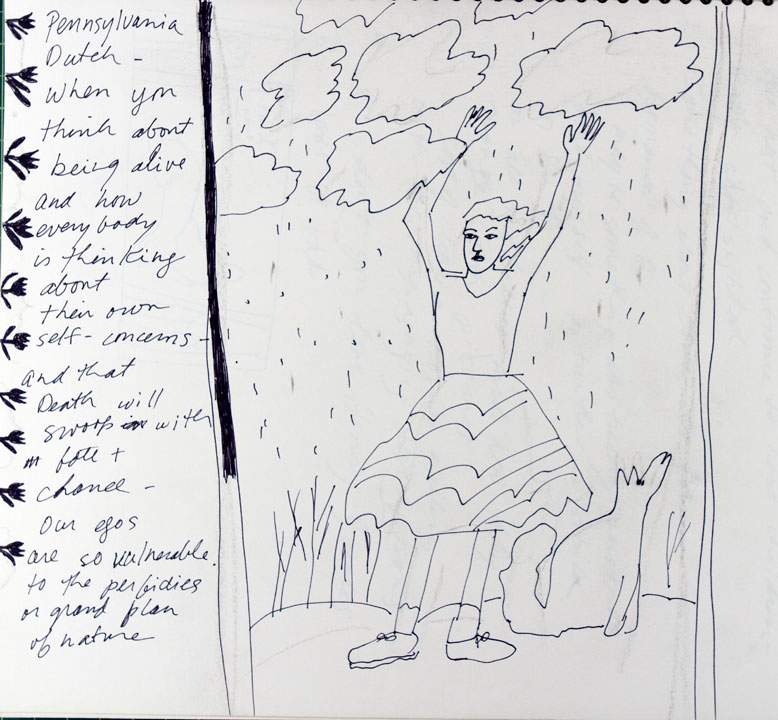 Pennsylvania
Dutch -
When you
think about
being alive
and how
everybody
is thinking
about
their own
self-concerns -
and that
Death will
swoop in with
fate +
chance -
our egos
are so vulnerable.
to the perfidies
or grand plan
of nature